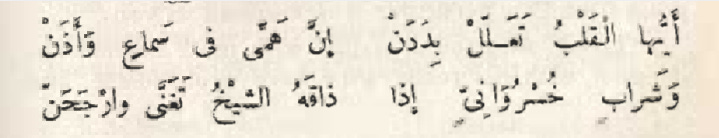 أَيُّهَا الْقَلْبُ تَعَلَّلْ بِدَدَنْ إِنَّ هَمِّى فى سَماعٍ وَأَذَنْ
وَشَرابٍ خُسْرُوَانِىٍّ إذا ذاقَهُ الشيْخُ تَغَنَّى وارْجَحَنّ